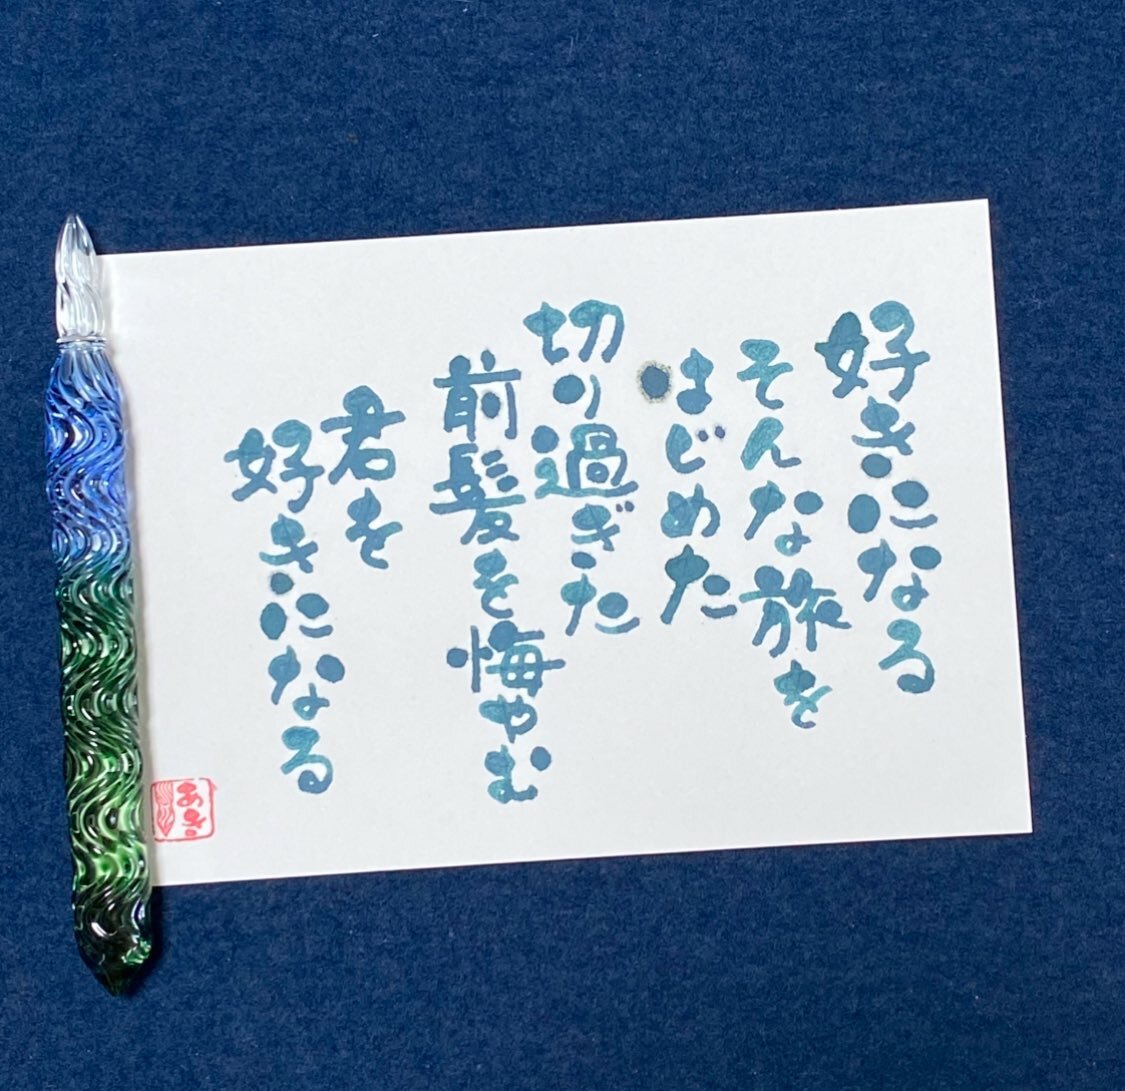 好きになる
そんな旅を
はじめた
切り過ぎた
前髪を悔やむ
君を
好きになる